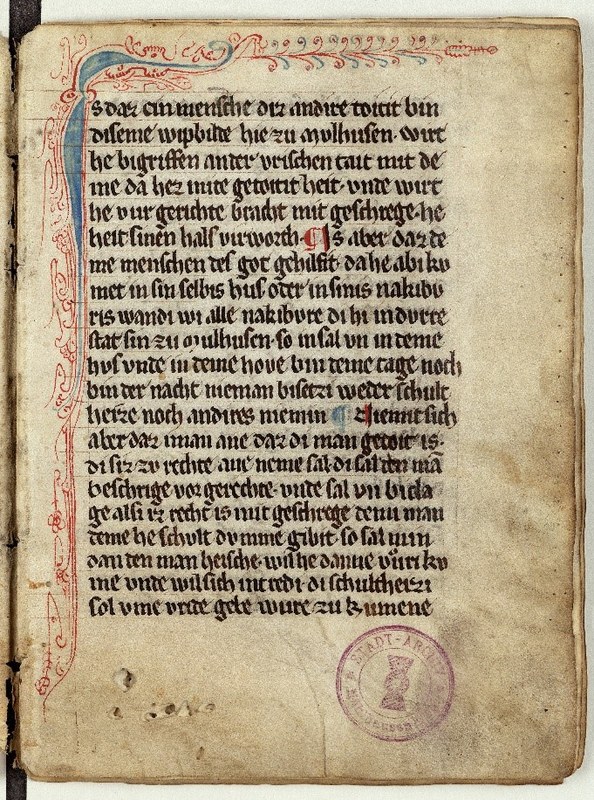 s daz ein mensche diz andire totit bin
diseme wipbilde hie zu mulhusen · wirt
he bigriffen an der vrischen tait mit de
me da hez mite getotit heit · unde wirt
he vur gerichte bracht mit geschrege · he
heit sinen hals virworch · ¶ Is aber daz de
me menschen des got gehilfit · da he abi ku
met in sin selbis hus oder in sinis nakibu
ris wandi wi alle nakibure di hi in durre
stat sin zu mulhusen · so in sal un in deme
hus unde in deme hove bin deme tage noch
bin der nacht nieman bisetzi weder schult
heize noch andires niemin ¶ Nennit sich
aber daz iman ane daz di man getoit is ·
di siz · zu rechte ane neme sal · di sal den mā
beschrige vor gerechte · unde sal un bicla
ge alsi iz recht is mit geschrege demi man
deme he schult dumme gibit · so sal min
dan den man heische · wil he danne vuri ku
me unde wil sich intredi · di schultheizi
sol ume vride gebe wure zu kumene
STADT-ARCHIV